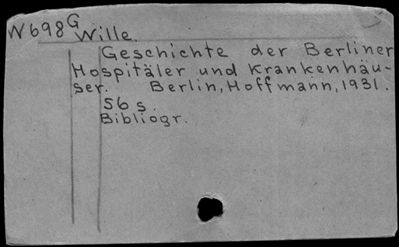 W698G Wille.
Geschichte der Berliner
Hospitäler und Krankenhäu-
ser. Berlin, Hoffmann, 1931.
56 s.
Bibliogr.